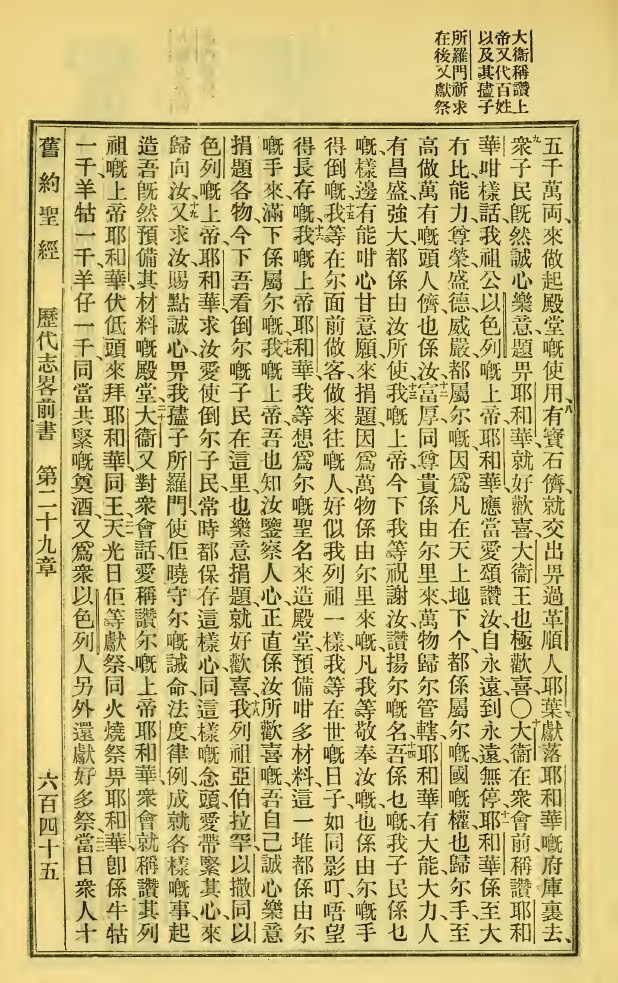 大衞稱讚上
帝又代百姓
以及其𡥧子
所羅門祈求
在後又獻祭
五千萬両、來做起殿堂嘅使用、八有寶石儕、就交出畀過革順人耶葉、獻落耶和華嘅府庫裏去、
九衆子民旣然誠心樂意題畀耶和華、就好歡喜、大衞王也極歡喜〇十大衞在衆會前稱讚耶和
華、咁樣話、我祖公以色列嘅上帝耶和華、應當愛頌讚汝、自永遠到永遠無停、十一耶和華係至大
冇比、能力尊榮盛德威嚴、都屬尔嘅、因爲凡在天上地下个都係屬尔嘅、國嘅權也歸尔手、至
高做萬有嘅頭人儕也係汝、十二富厚同尊貴係由尔里來、萬物歸尔管轄、耶和華有大能大力、人
有昌盛強大都係由汝所使、十三我嘅上帝、今下我等祝謝汝、讚揚尔嘅名、十四吾係乜嘅、我子民係乜
嘅樣、邊有能咁心甘意願來捐題、因爲萬物係由尔里來嘅、凡我等敬奉汝嘅、也係由尔嘅手
得倒嘅、十五我等在尔面前做客做來往嘅人、好似我列祖一樣、我等在世嘅日子如同影叮、唔望
得長存嘅、十六我嘅上帝耶和華、我等想爲尔嘅聖名來造殿堂、預備咁多材料、這一堆都係由尔
嘅手來、滿下係屬尔嘅、十七我嘅上帝、吾也知汝鑒察人心、正直係汝所歡喜嘅、吾自己誠心樂意
捐題各物、今下吾看倒尔嘅子民在這里也樂意捐題、就好歡喜、十八我列祖亞伯拉罕以撒同以
色列嘅上帝耶和華、求汝愛使倒尔子民常時都保存這樣心、同這樣嘅念頭、愛帶緊其心來
歸向汝、十九又求汝賜點誠心畀我𡥧子所羅門、使佢曉守尔嘅誡命法度律例、成就各樣嘅事、起
造吾旣然預備其材料嘅殿堂、二十大衞又對衆會話、愛稱讚尔嘅上帝耶和華、衆會就稱讚其列
祖嘅上帝耶和華、伏低頭來拜耶和華同王、天光日佢等獻祭同火燒祭畀耶和華、卽係牛牯
一千、羊牯一千、羊仔一千、同當共緊嘅奠酒、又爲衆以色列人另外還獻好多祭、當日衆人十
舊約聖經 歷代志畧前書 第二十九章 六百四十五